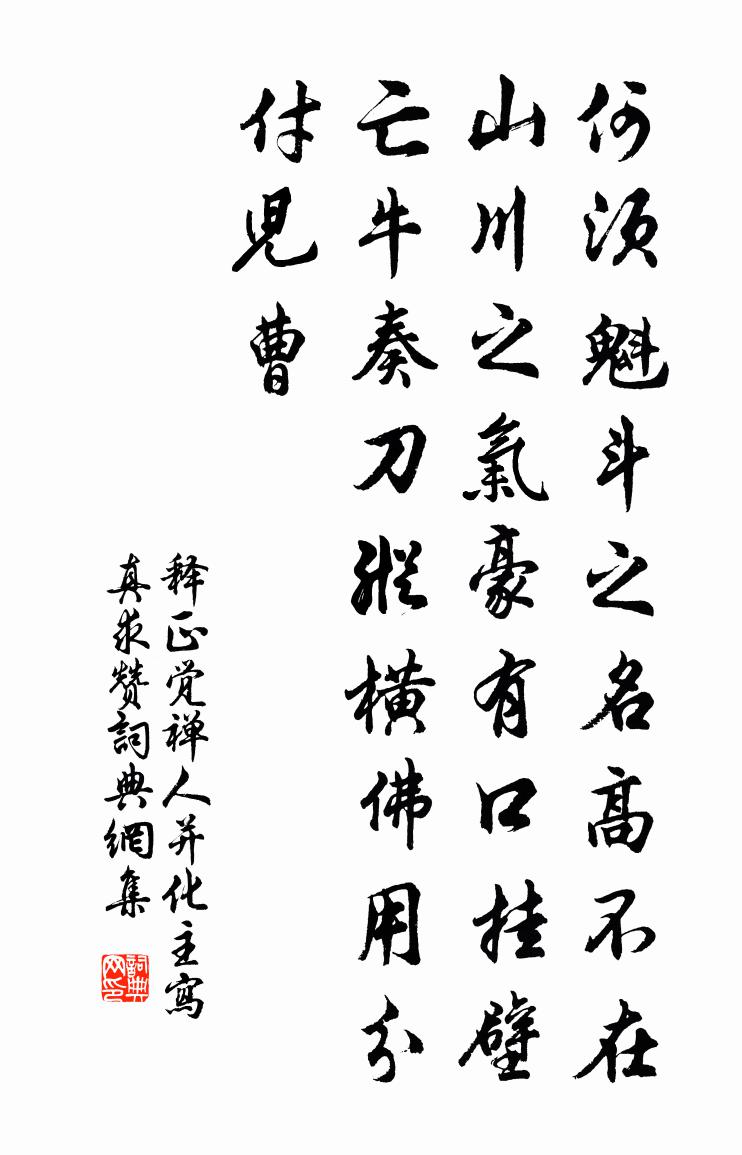 何須魁斗之名高不在
山川之氣豪有口挂壁
亡牛奏刀縱橫佛用分
付兒曹
释正觉禅人并化主寫
真求赞詞典網集
詞典网印